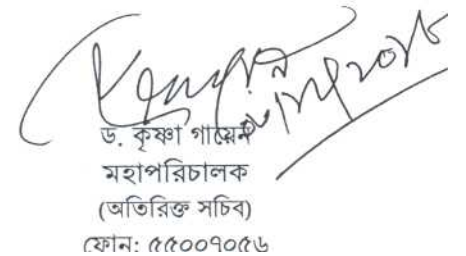 ড. কৃষ্ণা গায়েন
মহাপরিচালক
(অতিরিক্ত সচিব)
ফোন: ৫৫০০৭০৫৬